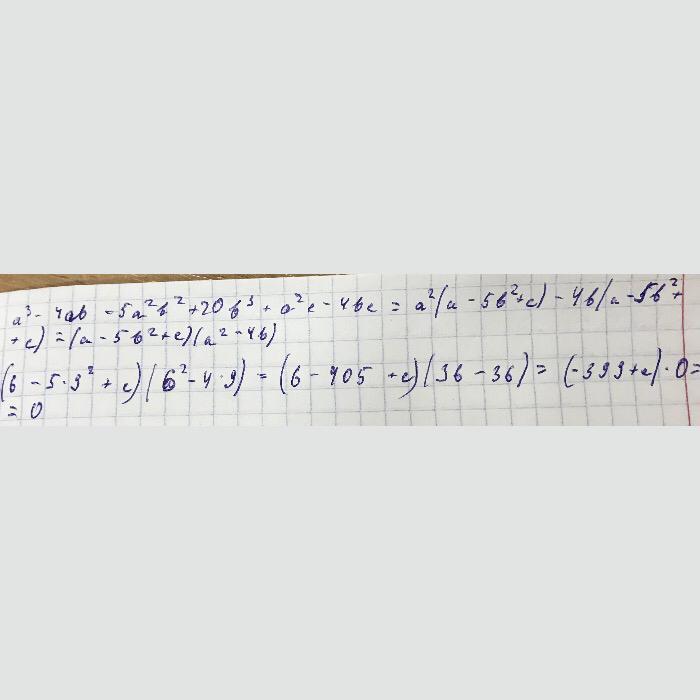 a³ - 4ab - 5a²b² + 20b³ + a²c - 4bc = a²(a - 5b² + c) - 4b(a - 5b² +
+ c) = (a - 5b² + c)(a² - 4b)
(6 - 5·9² + c)(6² - 4·9) = (6 - 405 + c)(36 - 36) = (-399 + c)·0 =
= 0